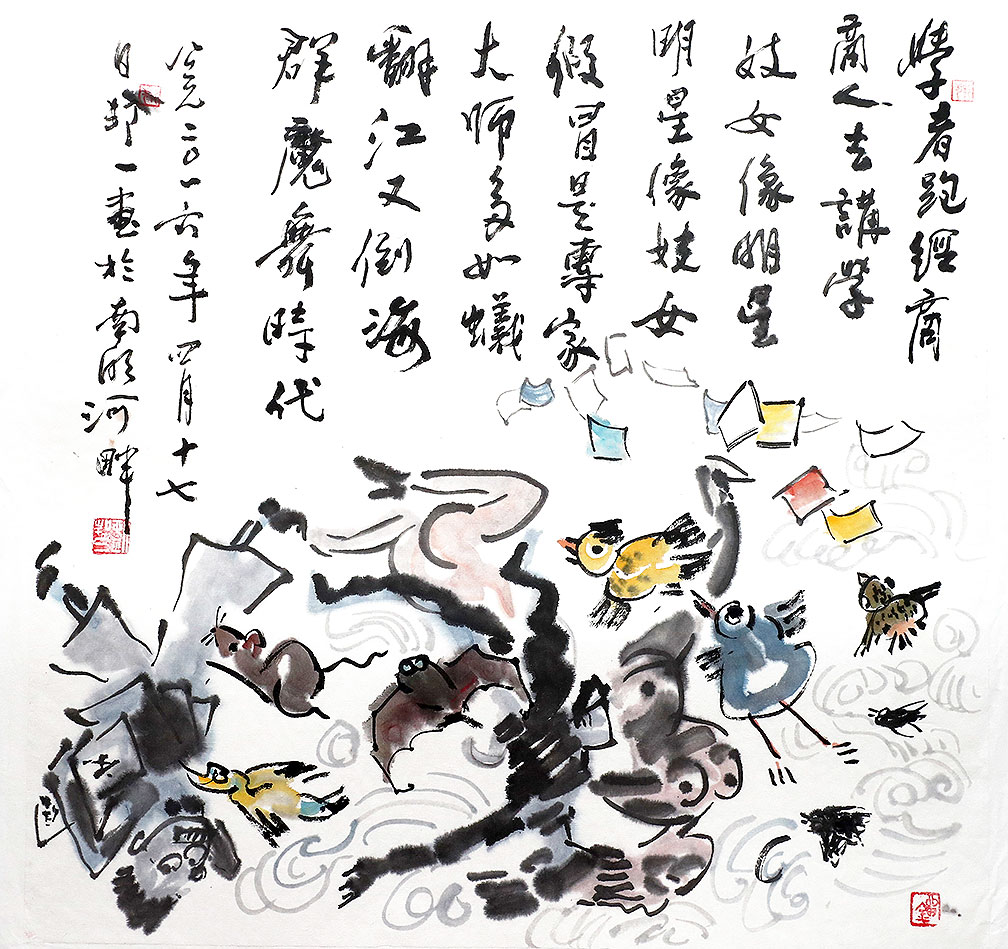 學者跑經商
商人去講學
妓女像明星
明星像妓女
假冒是專家
大師多如蟻
翻江又倒海
群魔舞時代
公元二〇一六年四月十七
日一畫於南明河畔